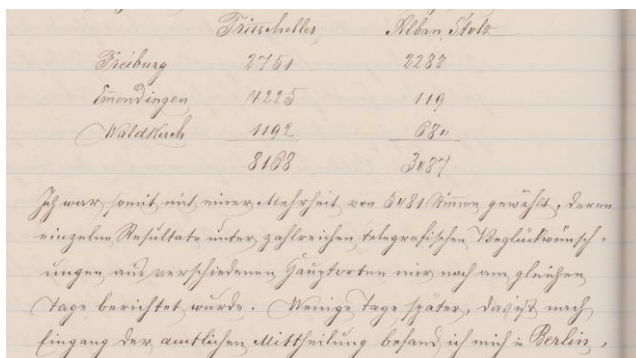 Tritscheller Alban Stolz
Freiburg 2751 2288
Emendingen 4225 119
Waldkirch 1192 680
8168 3087
Ich war somit mit einer Mehrheit von 5081 Stimmen gewählt, deren
einzelne Resultate unter zahlreichen telegrafischen Beglückwünsch-
ungen aus verschiedenen Hauptorten mir noch am gleichen
Tage berichtet wurde. Wenige Tage später, das ist nach
Eingang der amtlichen Mittheilung befand ich mich in Berlin,